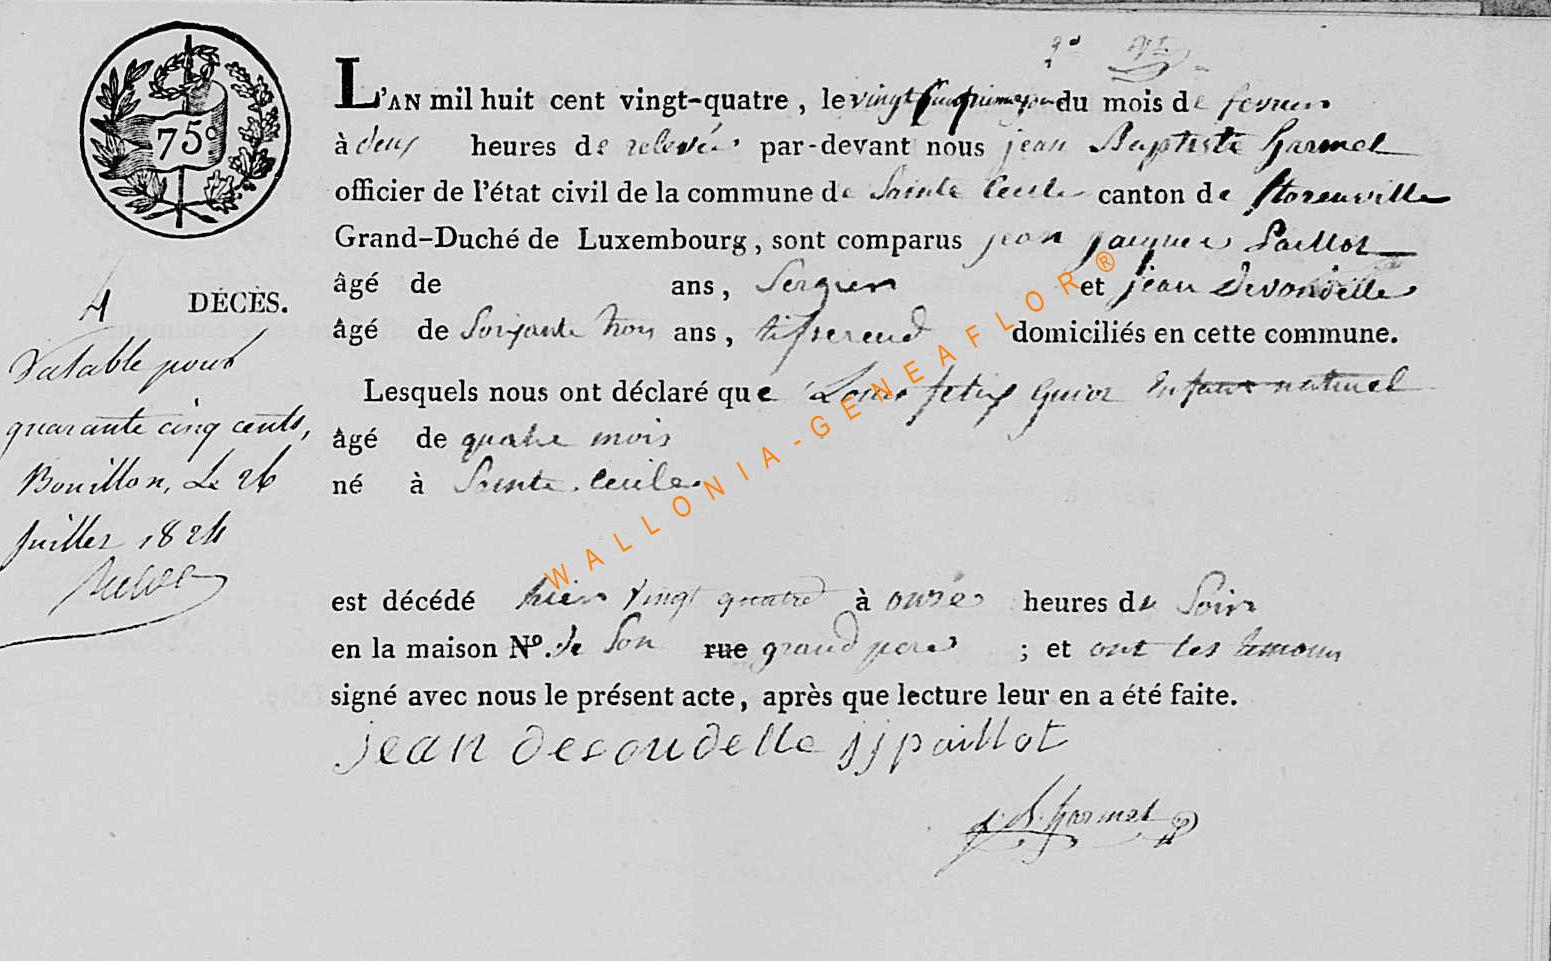 75c
L'AN mil huit cent vingt-quatre, le vingt cinquieme jour du mois de fevrier
à deux heures de relevée par-devant nous jean Baptiste harmel
officier de l'état civil de la commune de Sainte Cecile canton de florenville
Grand-Duché de Luxembourg, sont comparus jean jacques Paillot
âgé de ans, Sergier et jean Desoudelle
âgé de Soixante trois ans, tisserend domiciliés en cette commune.
Lesquels nous ont déclaré que Louis felix Guiot Enfant naturel
âgé de quatre mois
né à Sainte Cecile
est décédé hier vingt quatre à onze heures du Soir
en la maison N°. de Son rue grand pere ; et ont les temoins
signé avec nous le présent acte, après que lecture leur en a été faite.
jean desoudelle jjpaillot
J. B. harmel
4 DÉCÈS.
Valable pour
quarante cinq cents,
Bouillon, Le 26
Juillet 1824
WALLONIA-GENEAFLOR®